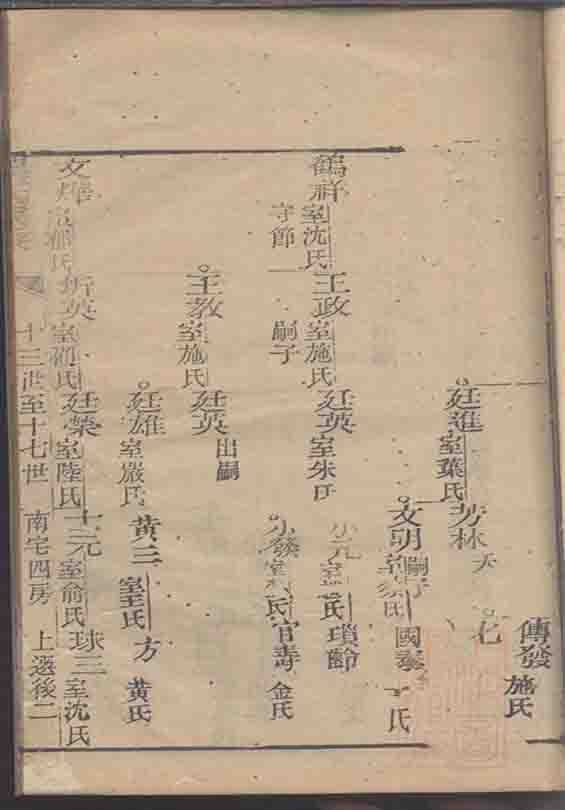 傳發 施氏
七
廷進 室葉氏 芳林 夭
文明 嗣子 國泰 氏
鶴祥 室沈氏 守節
王政 室施氏 嗣子
廷英 室朱氏
小元 室 氏 瑣齡
小發 室 氏 官壽 金氏
王教 室施氏
廷英 出嗣
廷雄 室嚴氏 黃三 室王氏 方 黃氏
文煇 室 氏
英 室 氏 廷榮 室陸氏 士元 室俞氏 球三 室沈氏
十三世至十七世 南宅四房 上選後二